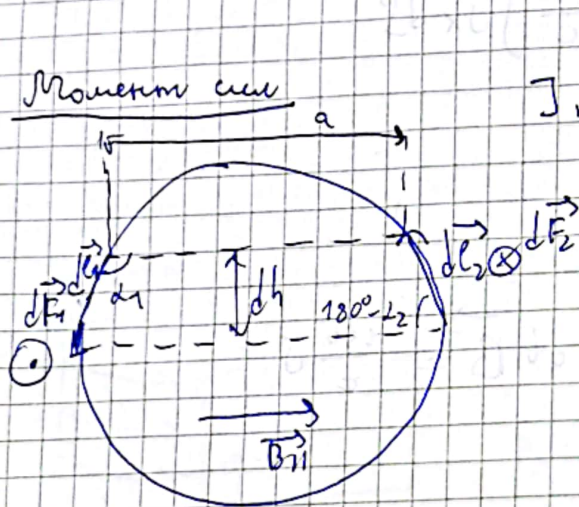 Момент сил
a
J,
dl⃗₁
dF⃗₁
α₁
dh
180°-α₂
dl⃗₂ ⊗ dF⃗₂
B⃗₁₁